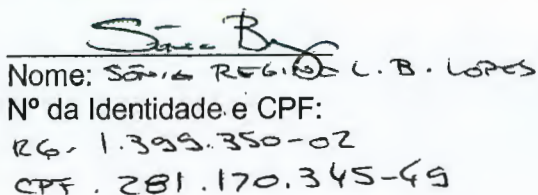 Nome: SÔNIA REGINA L. B. LOPES
Nº da Identidade e CPF:
RG. 1.399.350-02
CPF. 281.170.345-49